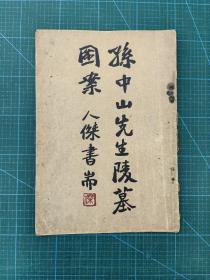 孫中山先生陵墓
圖案 人傑書耑